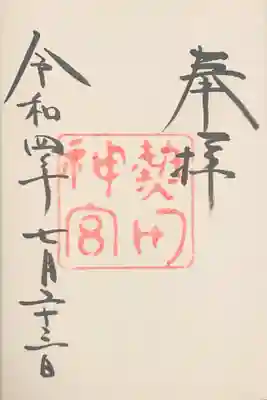 奉拝
熱田
神宮
令和四年七月二十三日